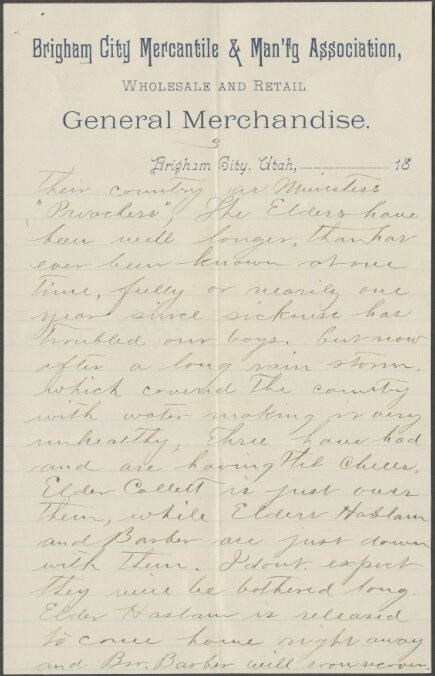 Brigham City Mercantile & Man'fg Association,
Wholesale and Retail
General Merchandise.
3
Brigham City, Utah, 18
their country as Ministers
"Preachers". The Elders have
been well longer, than has
ever been known at one
time, fully or nearly one
year since sickness has
troubled our boys. but now
after a long rain storm.
which covered the country
with water making it very
unhealthy, Three have had
and are having the chills.
Elder Collett is just over
them, while Elders Haslam
and Barber are just down
with them. I dont. expect
they will be bothered long.
Elder Haslam is released
to come home right away
and Bro. Barber will soon recover.